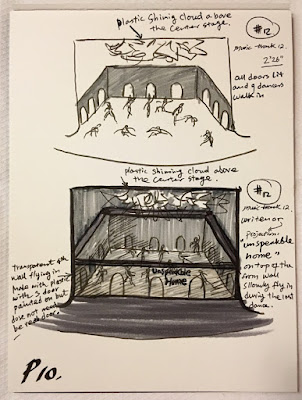 plastic Shining Cloud above
the Center stage.
#12
Music track 12
2'26"
all doors Lit
and 9 dancers
walk in
plastic Shinning cloud above
the Center Stage.
#12
Music track 12
written or
projection
"unspeakble
home"
on top of the
front wall
Slowly fly in
during the last
dance.
Transparent 4th
wall flying in
Made with plastic
with 9 door
painted on but
dose not need to
be real doors
Unspeakble
Home
P10.